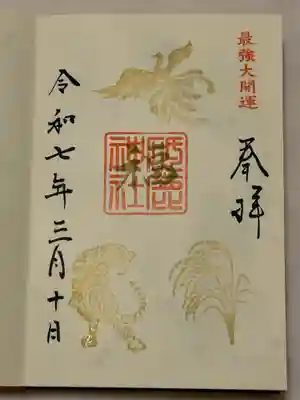 最強大開運
奉拝
令和七年三月十日